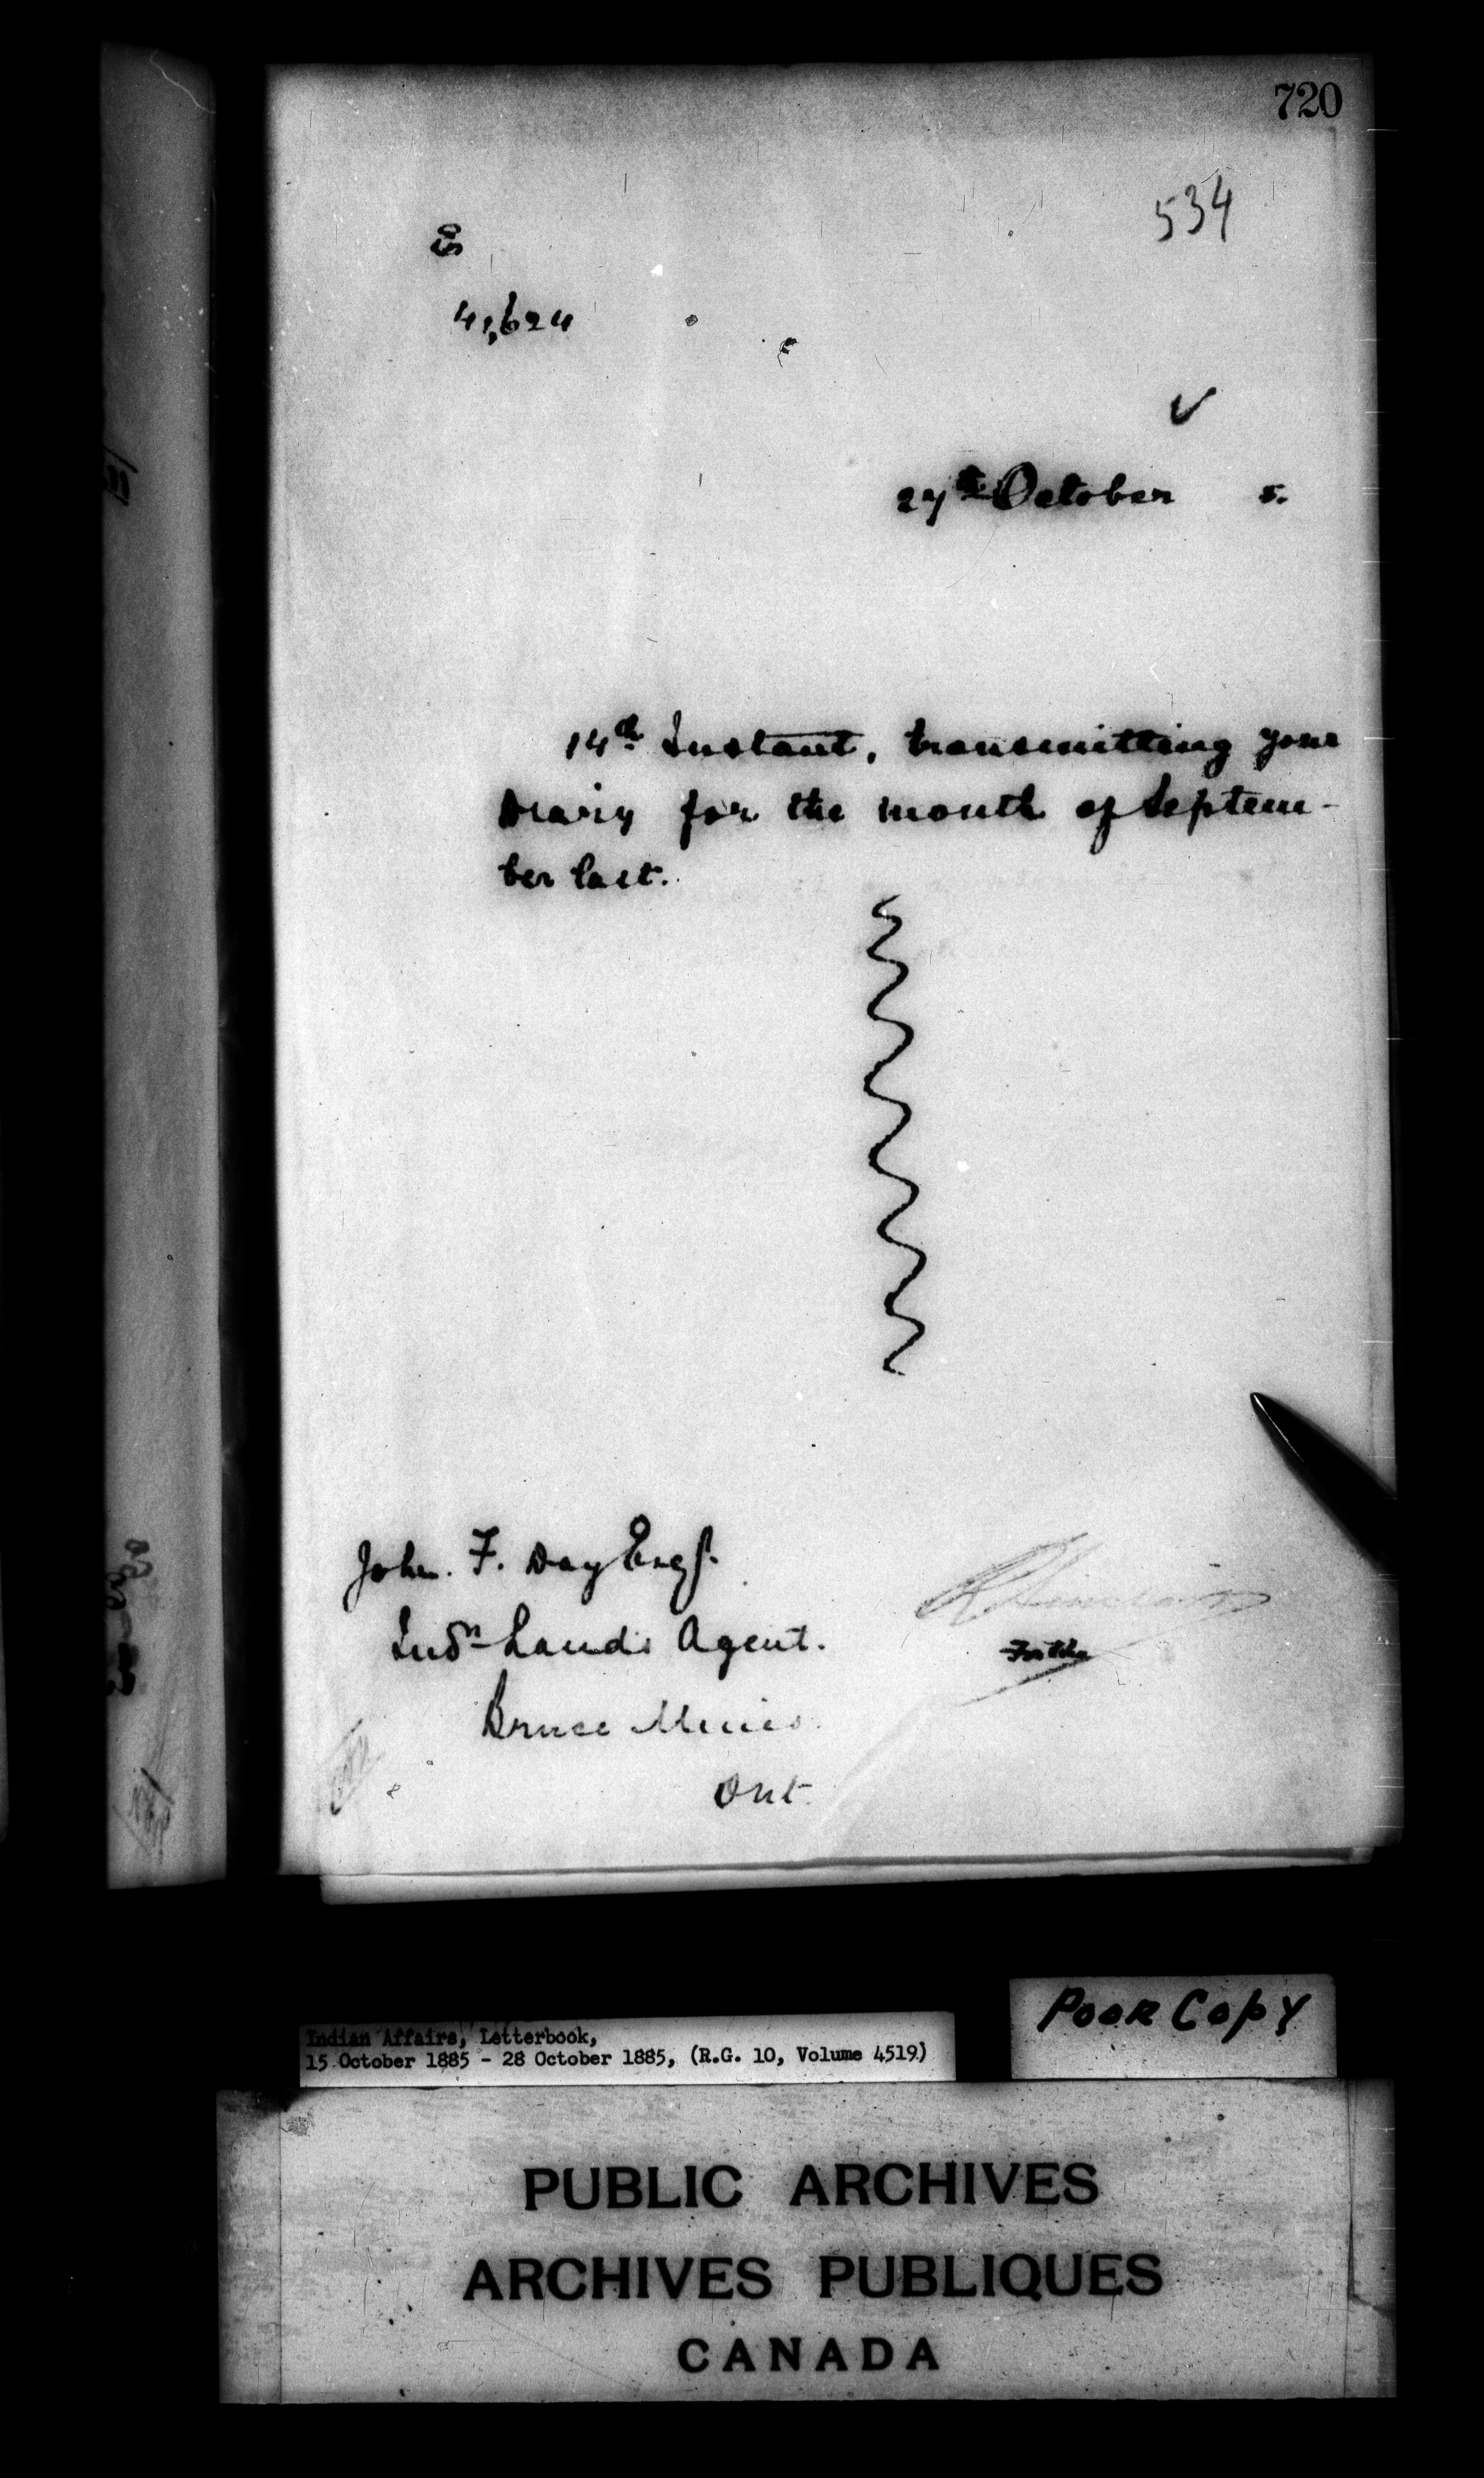 720
534
41,624
27th October 5.
14th Instant, transmitting your
Diary for the month of Septem-
ber last.
John. F. Day Esqr.
Indn Lands Agent.
For the
Bruce Mines
Ont
Poor Copy
Indian Affairs, Letterbook,
15 October 1885 - 28 October 1885, (R.G. 10, Volume 4519)
PUBLIC ARCHIVES
ARCHIVES PUBLIQUES
CANADA